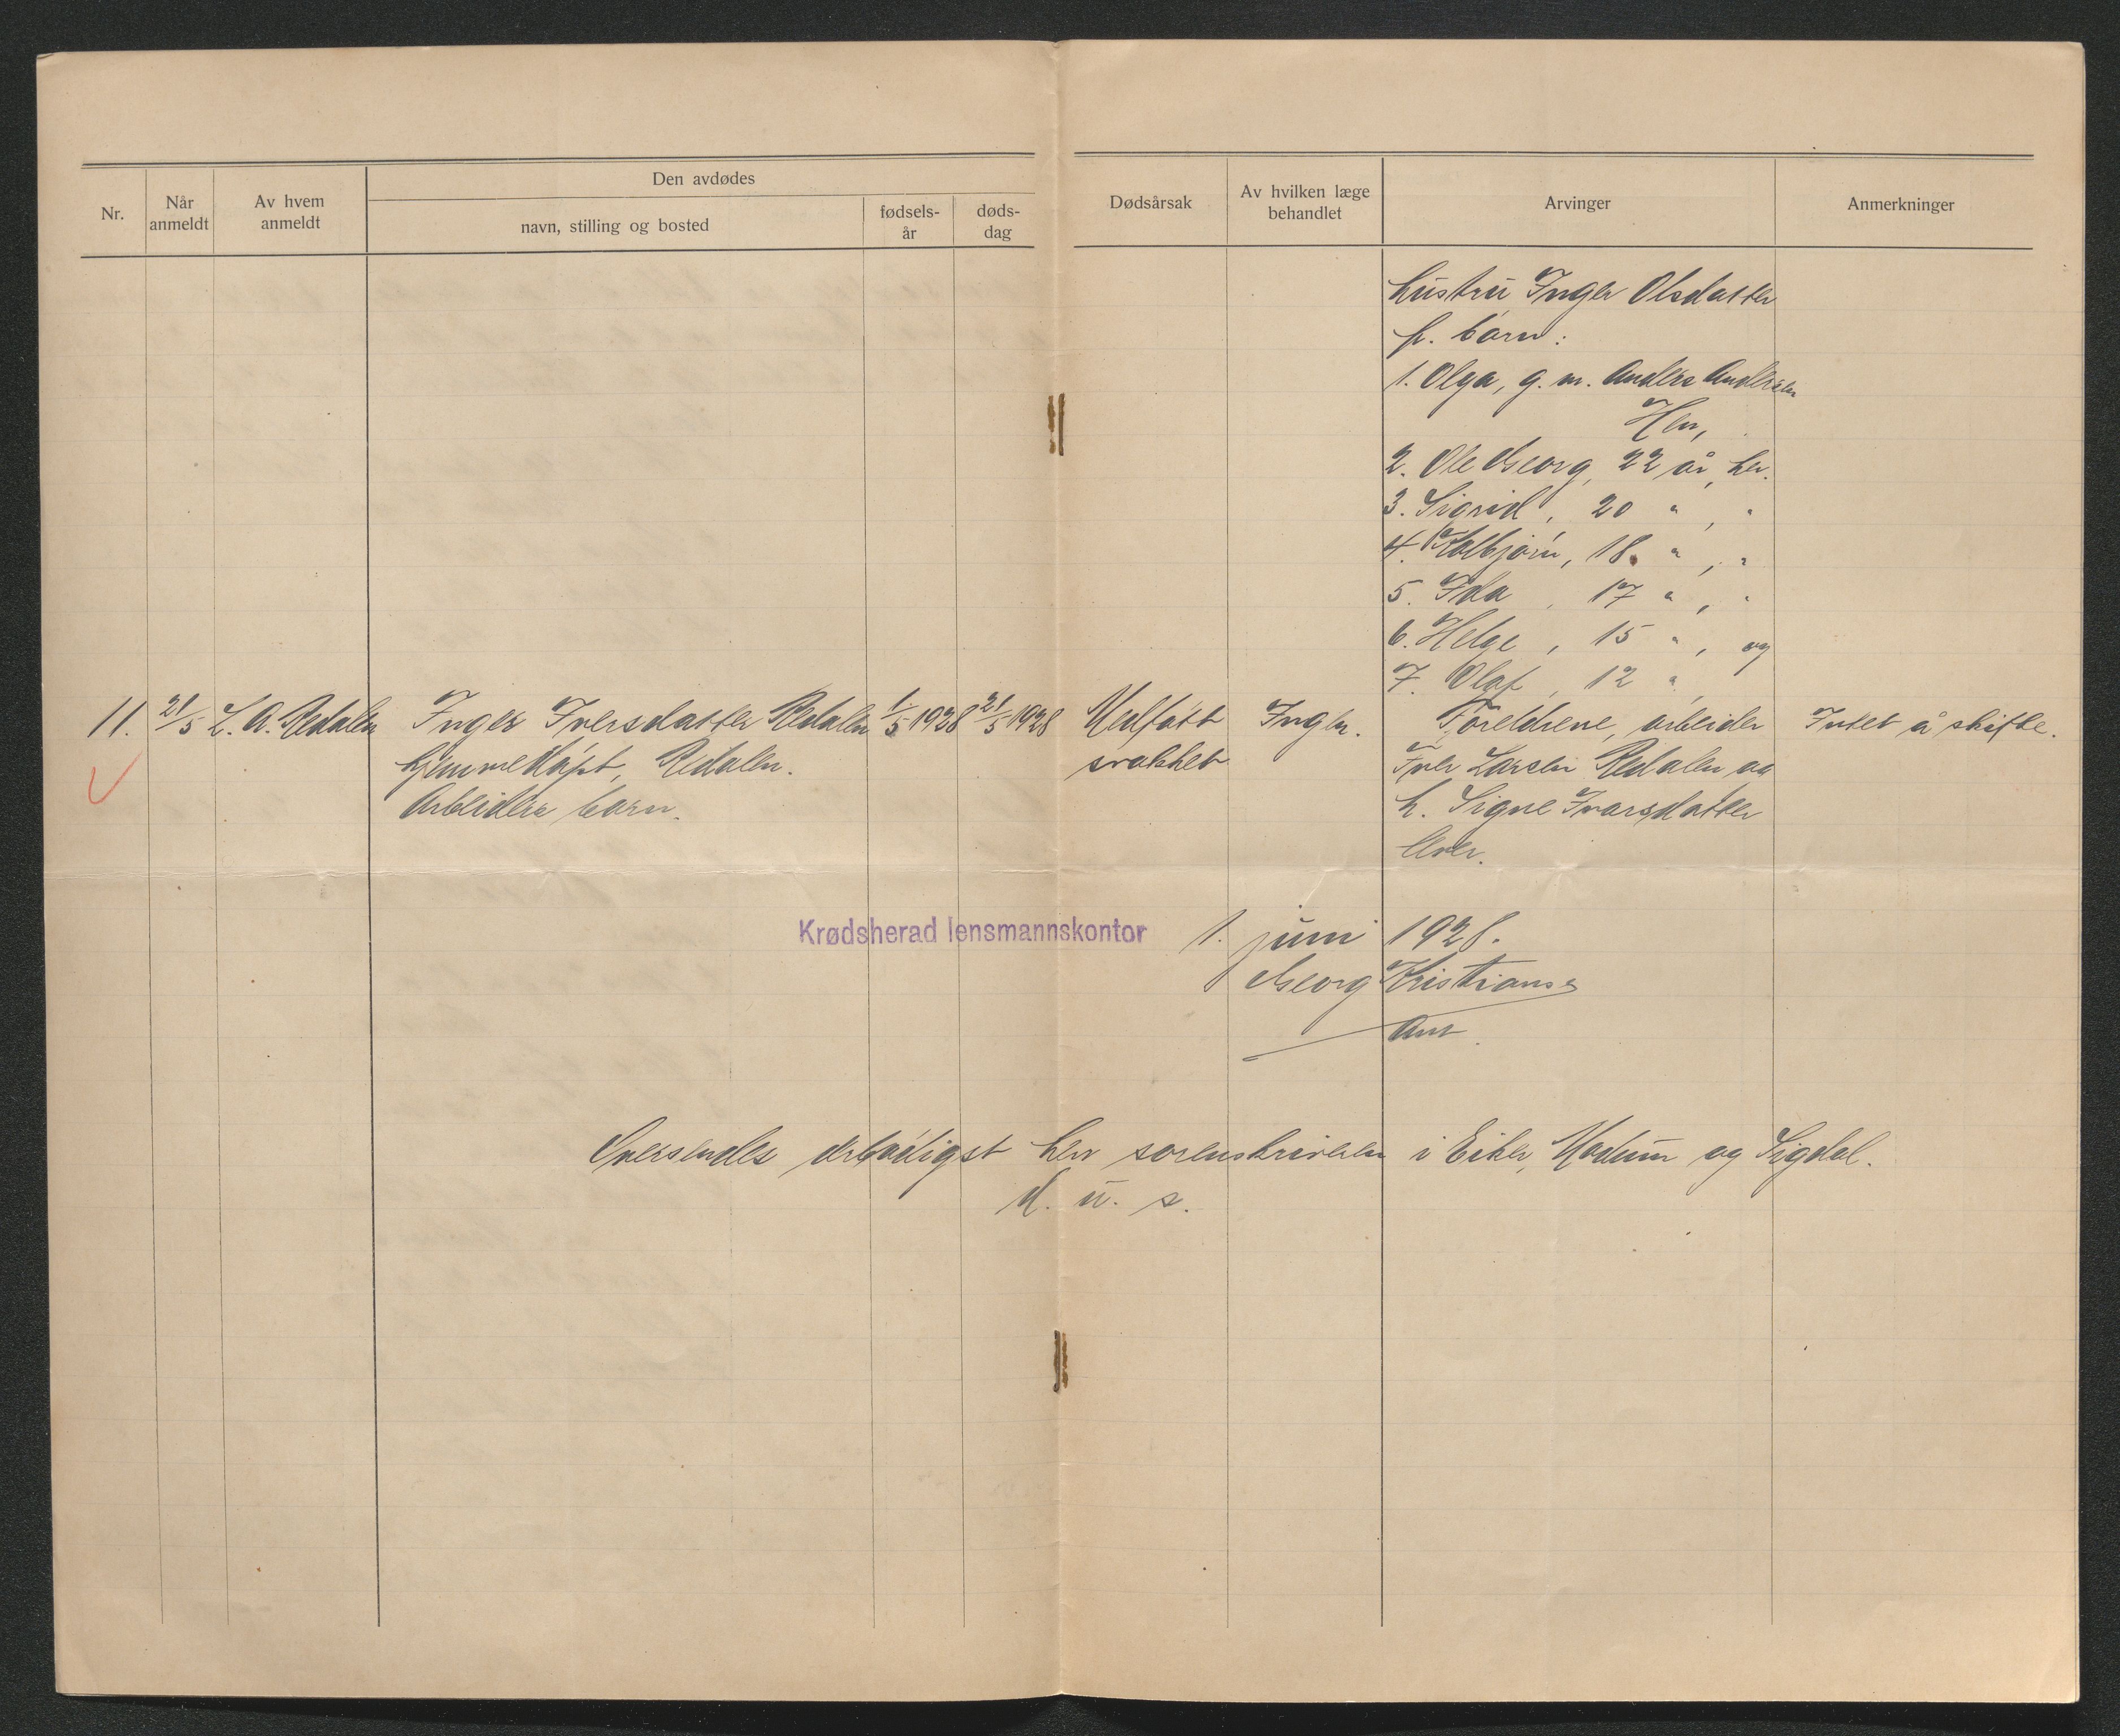 Nr.
Når anmeldt
Av hvem anmeldt
Den avdødes
navn, stilling og bosted
fødsels-
år
døds-
dag
Dødsårsak
Av hvilken læge
behandlet
Arvinger
Anmerkninger
Hustru Inger Olsdatter
p. barn:
1. Olga, g. m. Anders Andersen
Hen,
2. Ole Georg, 22 år, her.
3. Sigrid, 20 " , "
4. Kolbjørn, 18. " , "
5. Ida, 17 " , "
6. Helge, 15 " , og
7. Olaf, 12 "
11. 21/5 L. A. Redalen Inger Iversdatter Redalen 1/5 1928 21/5 1928 Medfødt Ingen. Foreldrene, arbeider Intet å skifte.
hjemmedøpt, Redalen. svakhet Iver Larsen Redalen og
Arbeiders barn. h. Signe Ivarsdatter
lever.
Krødsherad lensmannskontor 1. juni 1928.
Georg Kristianse
Ans
Oversendes ærbødigst herr sorenskriveren i Eiker, Modum og Sigdal.
D. u. s.